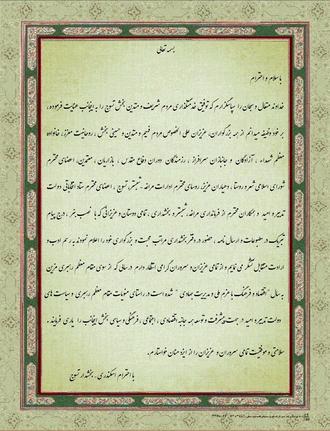 بسمه تعالی
با سلام و احترام
خداوند متعال و سبحان را سپاسگزارم که توفیق خدمتگزاری مردم شریف و متدین بخش تسوج را به اینجانب عنایت فرموده،
بر خود وظیفه میدانم از همه بزرگواران، عزیزان علی الخصوص مردم فهیم و متدین و حسینی بخش، روحانیت معزز، خانواده
معظم شهداء، آزادگان و جانبازان سرافراز، رزمندگان دوران دفاع مقدس، بازاریان، معتمدین، اعضای محترم
شورای اسلامی شهر و روستا، دهیاران عزیز، روسای محترم ادارات مراغه، شبستر و تسوج، اعضای محترم ستاد انتخاباتی دولت
تدبیر و امید و همکاران محترم از فرمانداری مراغه، شبستر و بخشداری، تمامی دوستان و عزیزانی که با نصب بنر، درج پیام
تبریک در مطبوعات و ارسال نامه، حضور در دفتر بخشداری مراتب محبت و بزرگواری خود را اعلام نمودند به رسم ادب و
ارادت متقابل تشکر می نمایم و از تمامی عزیزان و سروران گرامی انتظار دارم در سالی که از سوی مقام معظم رهبری مزین
به سال "اقتصاد و فرهنگ با عزم ملی و مدیریت جهادی" شده است در راستای منویات مقام معظم رهبری و سیاست های
دولت تدبیر و امید در جهت پیشرفت و توسعه همه جانبه اقتصادی، اجتماعی، فرهنگی و سیاسی بخش اینجانب را یاری فرمایند.
سلامتی و موفقیت تمامی سروران و عزیزان را از ایزد منان خواستارم.
با احترام اسکندری، بخشدار تسوج